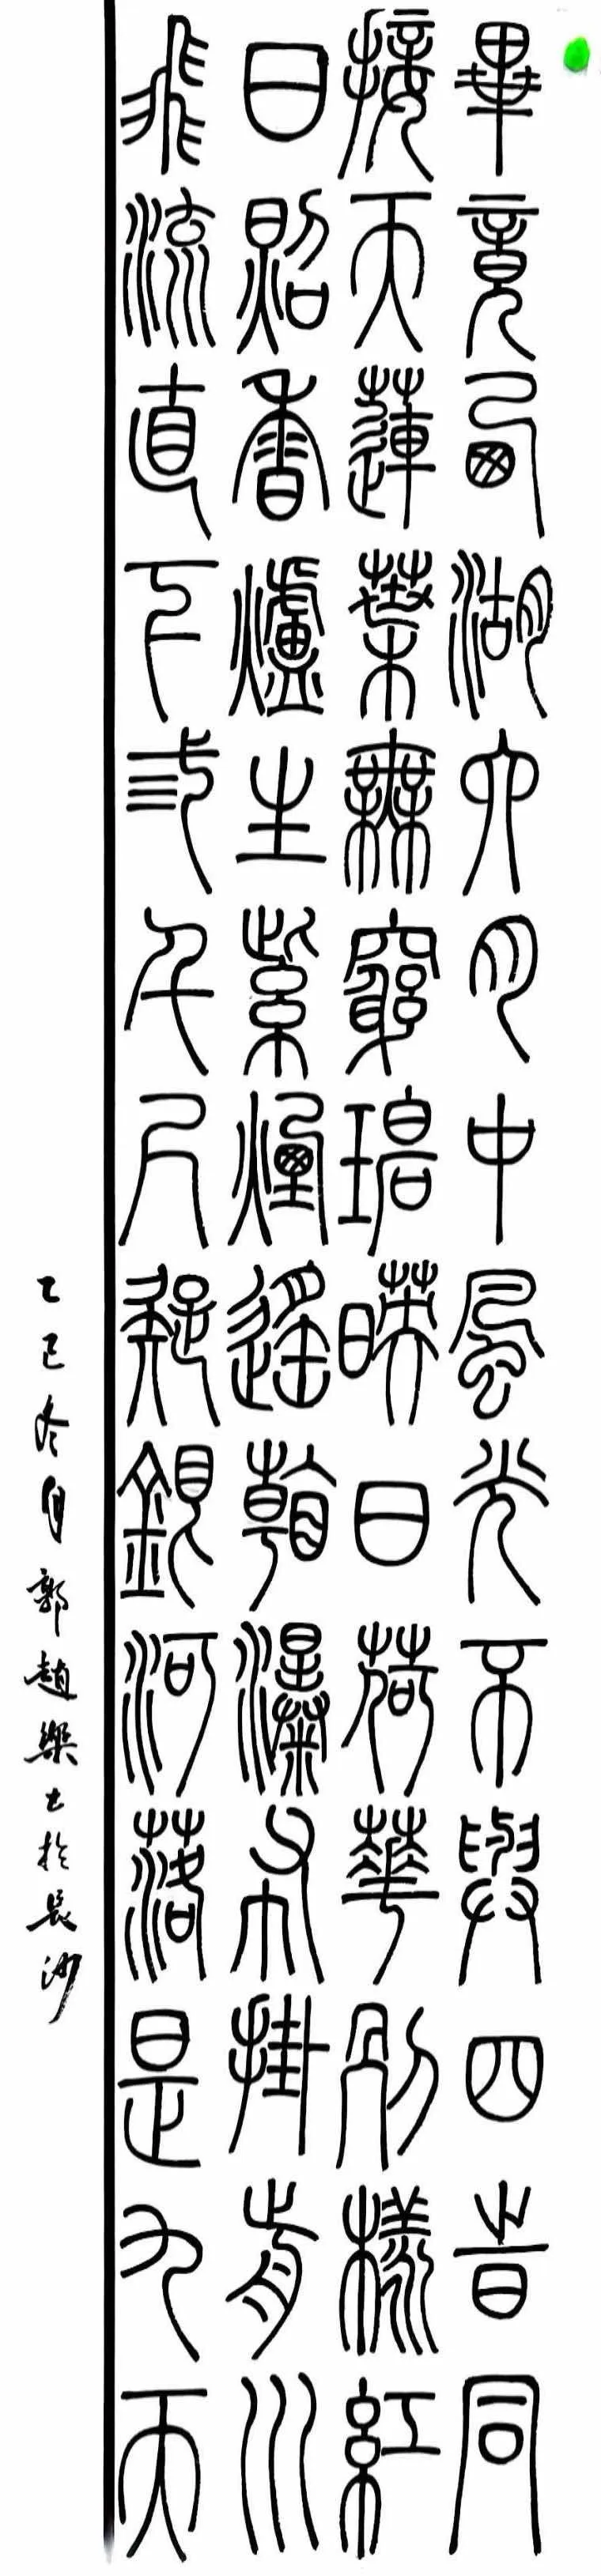 畢竟西湖六月中風光不與四旹同
接天蓮葉無窮碧暎日荷華別樣紅
日照香爐生紫煙遙看瀑布掛歬川
飛流直下弎千尺疑銀河落是九天
乙巳冬月郭趙樂書於長沙